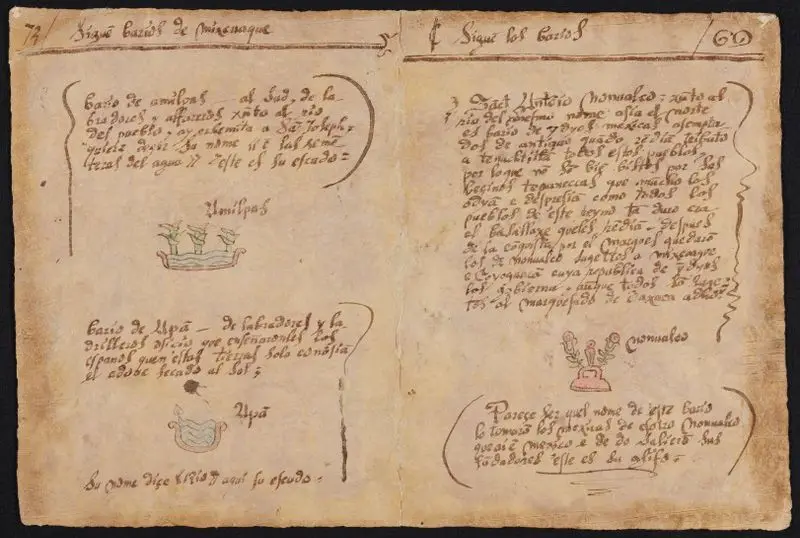 74
Sigue barios de mixcoaque
bario de amilpas — al sud, de la-
bradores y alforeros xũto al rio
del pueblo, ay erhemita a Sã Joseph,
quiere dezir su nome ẽ las seme-
teras del agua este es su escudo =
Amilpas
bario de Apã — de labradores y la-
drilleros oficio que enseñarõnles los
españos quen estas tierras solo conosiã
el adobe secado al sol;
Apã
Su nome diçe aqui su escudo.
Sigue los barios
69
Sact Antonio Nonualco: xũto al
rio del mesmo nome asia el norte
es bario de mexicas asenta-
dos de antiguo quãdo rẽdia tributo
a tenuchtitlã todos estos pueblos,
por lo que nõ so biẽ bistos por sus
beçinos tepanecas que mucho los
odyã e despresiã como todos los
pueblos de este reyno tã duro era
el basallaxe queles pedia. despues
de la cõquista por el marques quedarõ
los de nonualco sugettos a mixcoaque
e Coyoquacã cuya republica de yndyos
los gobierna aunque todos
tos al marquesado de Oaxaca
nonualco
Pareçe ser quel nome de este bario
lo tomarõ los mexicas de esotro Nonualco
que ai ẽ mexico e de do saliero sus
fũdadores este es su glifo =